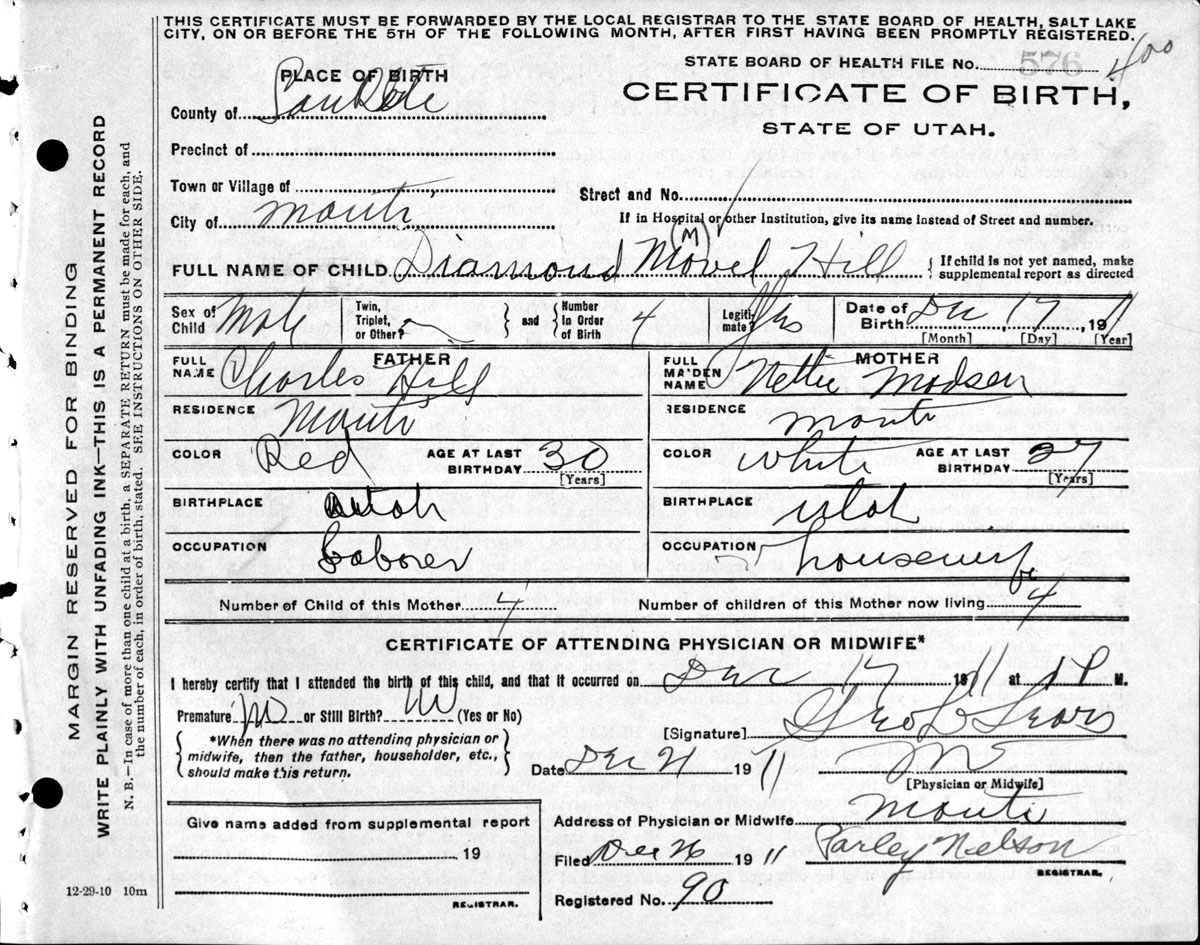 THIS CERTIFICATE MUST BE FORWARDED BY THE LOCAL REGISTRAR TO THE STATE BOARD OF HEALTH, SALT LAKE
CITY, ON OR BEFORE THE 5TH OF THE FOLLOWING MONTH, AFTER FIRST HAVING BEEN PROMPTLY REGISTERED.
STATE BOARD OF HEALTH FILE NO. 576 400
CERTIFICATE OF BIRTH,
STATE OF UTAH.
PLACE OF BIRTH
County of SanPete
Precinct of
Town or Village of
Street and No.
City of Manti
If in Hospital or other Institution, give its name instead of Street and number.
(M)
FULL NAME OF CHILD Diamond Hill { If child is not yet named, make
supplemental report as directed
Sex of Child Male
Twin, Triplet, or Other? } and { Number In Order of Birth 4
Legitimate? Yes
Date of Birth Dec 17, 1911
[Month] [Day] [Year]
FATHER
FULL NAME Charles Hill
MOTHER
FULL MAIDEN NAME Nettie Madsen
RESIDENCE Manti
RESIDENCE Manti
COLOR Red AGE AT LAST BIRTHDAY 30 [Years]
COLOR White AGE AT LAST BIRTHDAY 27 [Years]
BIRTHPLACE Utah
BIRTHPLACE Utah
OCCUPATION Laborer
OCCUPATION housewife
Number of Child of this Mother 4 Number of children of this Mother now living 4
CERTIFICATE OF ATTENDING PHYSICIAN OR MIDWIFE*
I hereby certify that I attended the birth of this child, and that it occurred on Dec 17 1911 at 1 P M.
Premature? No or Still Birth? No (Yes or No)
[Signature] Geo L Sears
{ *When there was no attending physician or
midwife, then the father, householder, etc.,
should make this return. }
Date Dec 21 1911
[Physician or Midwife]
Address of Physician or Midwife Manti
Give name added from supplemental report
19
REGISTRAR.
Filed Dec 26 1911 Parley Nelson
REGISTRAR.
Registered No. 90
12-29-10 10m
MARGIN RESERVED FOR BINDING
WRITE PLAINLY WITH UNFADING INK—THIS IS A PERMANENT RECORD
N. B.—In case of more than one child at a birth, a SEPARATE RETURN must be made for each, and
the number of each, in order of birth, stated. SEE INSTRUCTIONS ON OTHER SIDE.